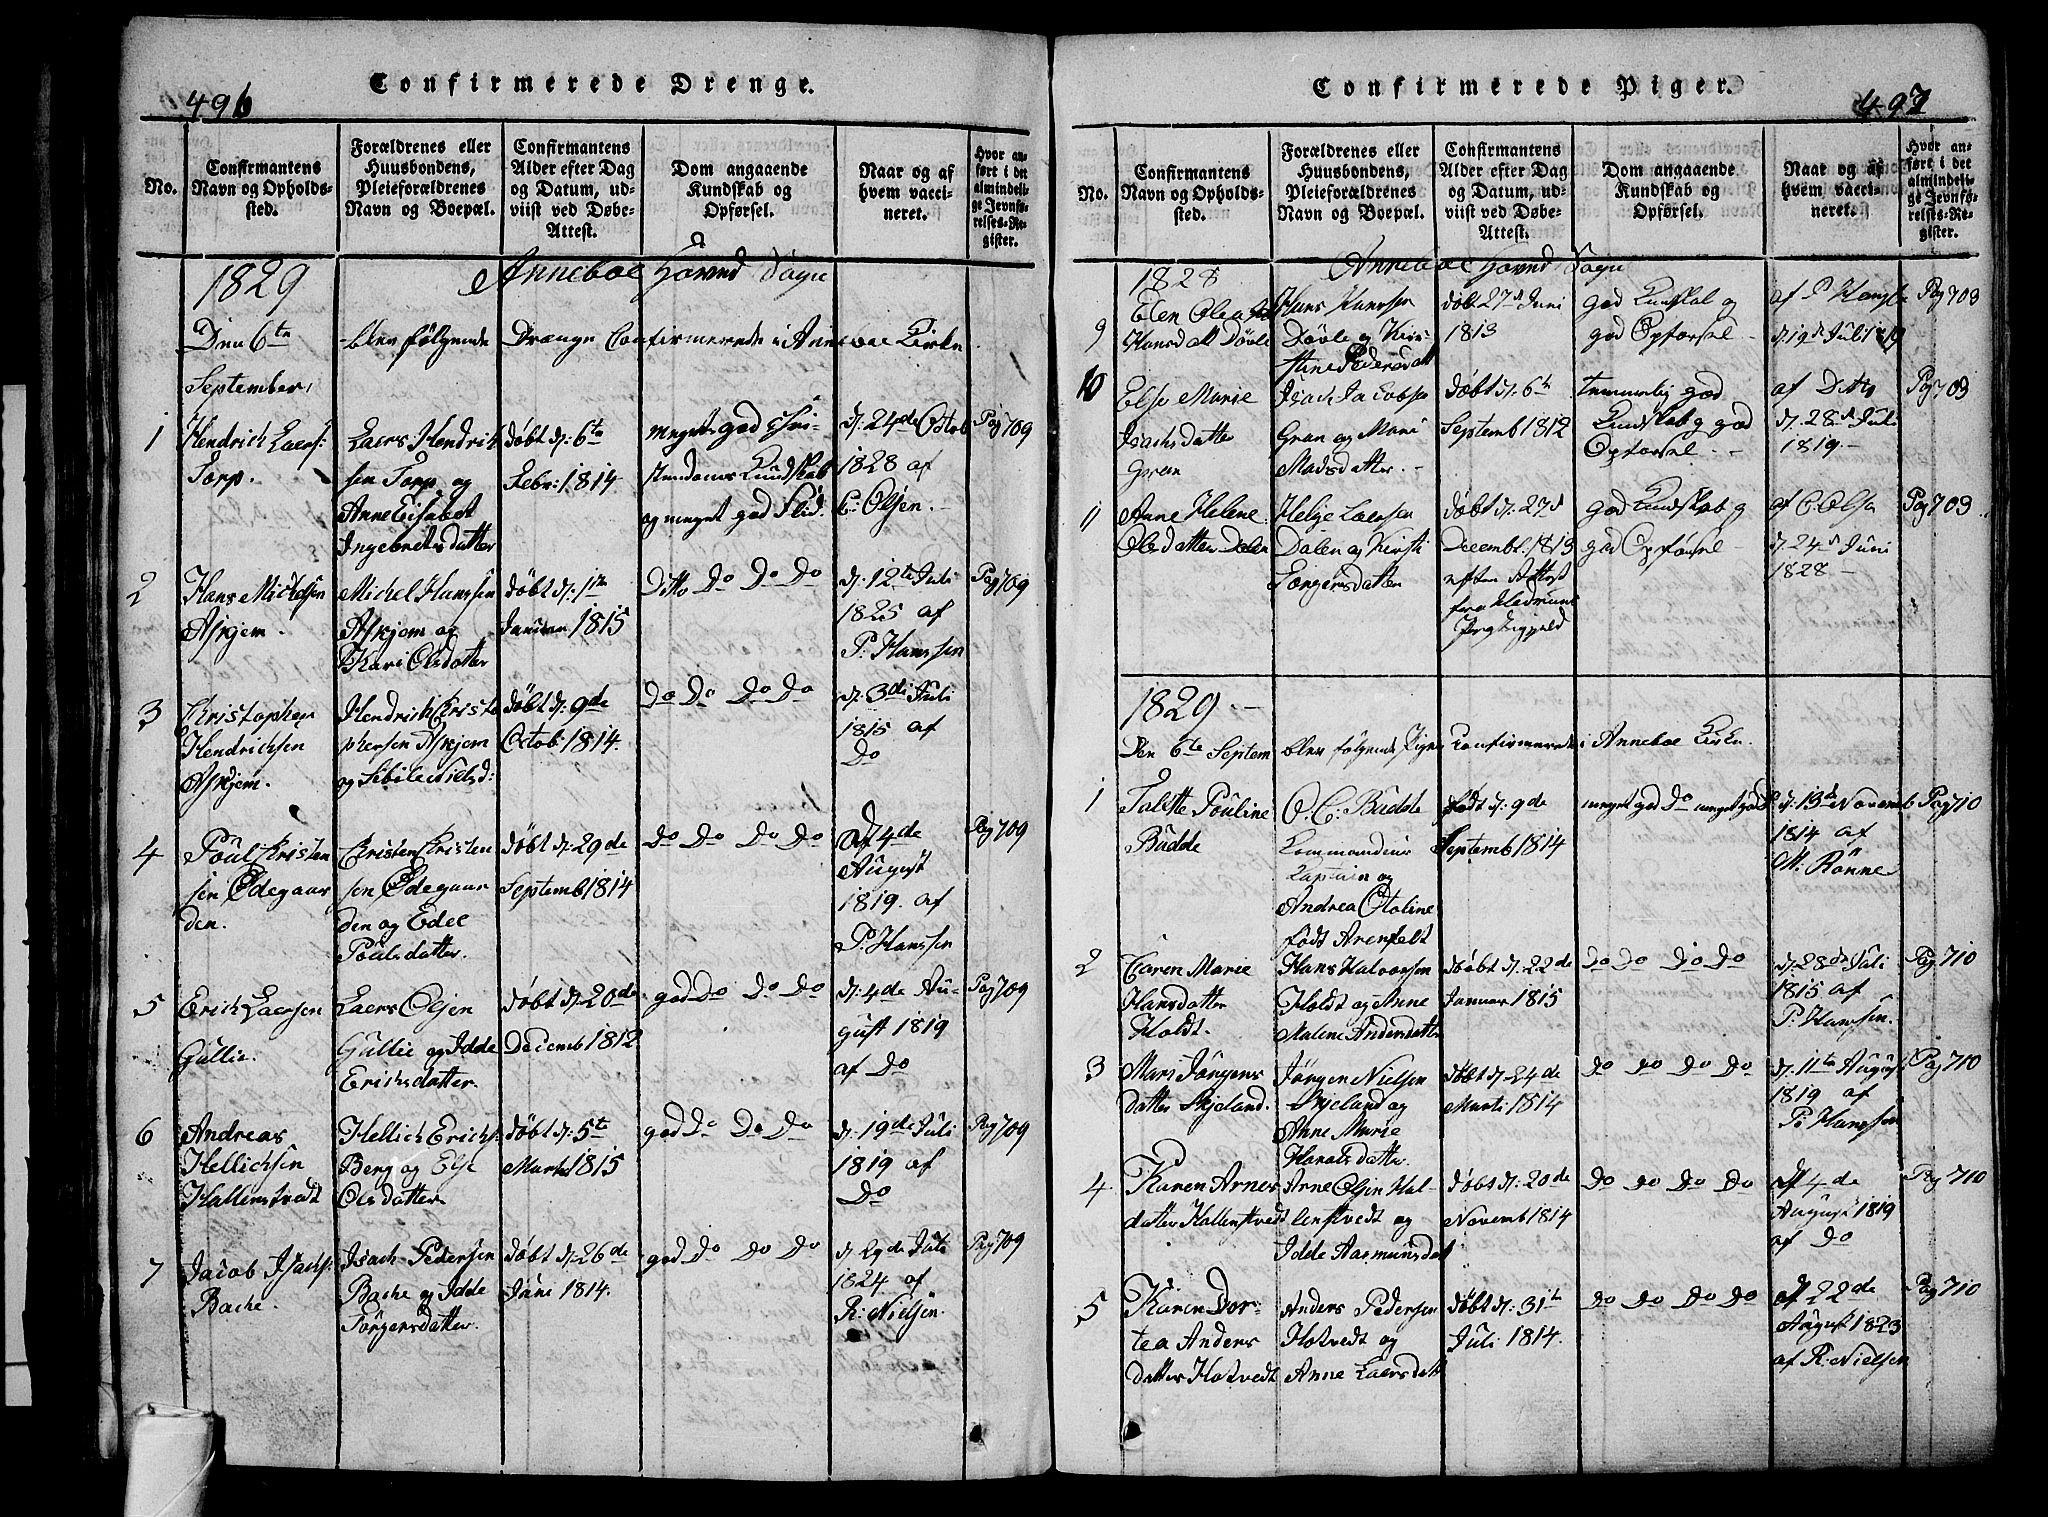 496
Confirmerede Drenge.
No.
Confirmantens
Navn og Opholds-
sted.
Forældrenes eller
Huusbondens,
Pleieforældrenes
Navn og Boepæl.
Confirmantens
Alder efter Dag
og Datum, ud-
viist ved Døbe-
Attest.
Dom angaaende
Kundskab og
Opførsel.
Naar og af
hvem vacci-
neret.
Hvor an-
ført i det
almindeli-
ge Jevnfø-
relses-Re-
gister.
1829
Anneboe Hovud Sogn
Den 6te blev følgende Drænge Confirmerede i Anneboe Kirke
September
1
Hendrich Laers:
Torp.
Laers Hendrik
sen Torp og
Anne Elsabet
Ingebretsdatter
døbt d: 6te
Febr: 1814
meget god Chri-
stendoms Kundskab
og meget god Flid.
d: 24de Octob
1828 af
C: Olsen.
Pag 709
2
Hans Michelsen
Askjem.
Michel Hanssen
Askjem og
Kari Olsdatter
døbt d: 1te
Januar 1815
Ditto Do Do Do
d: 12te Juli
1825 af
P: Hanssen
Pag 709
3
Kristopher
Hendrichsen
Askjem.
Hendrich Kristo
phersen Askjem
og Sibile Nielsd:
døbt d: 9de
Octob: 1814.
Do Do Do Do
d: 3di Juli
1815 af
Do
4
Poul Kristen
sen Ødegaar
den.
Christen Kristen
sen Ødegaar
den og Edel
Poulsdatter.
døbt d: 29de
Septemb 1814
Do Do Do Do
d 4de
August
1819. af
P: Hanssen
Pag 709
5
Erich Laersen
Gullie.
Laers Olsen
Gullie og Idde
Erichsdatter.
døbt d: 20de
Decemb 1812.
god Do Do Do
d: 4de Au-
gust 1819
af Do
Pag 709
6
Andreas
Hellichsen
Hallenstvedt
Hellich Erichs:
Berg og Else
Olsdatter.
døbt d: 5te
Marti 1815
god Do Do Do
d: 19de Juli
1819 af
Do
Pag 709
7
Jacob Isachs:
Bache.
Isach Pedersen
Bache og Idde
Jørgensdatter.
døbt d: 26de
Juni 1814.
god Do Do Do
d 29de Juli
1824 af
R: Nielsen
Pag 709
497
Confirmerede Piger.
No.
Confirmantens
Navn og Opholds-
sted.
Forældrenes eller
Huusbondens,
Pleieforældrenes
Navn og Boepæl.
Confirmantens
Alder efter Dag
og Datum, ud-
viist ved Døbe-
Attest.
Dom angaaende
Kundskab og
Opførsel.
Naar og af
hvem vacci-
neret.
Hvor an-
ført i det
almindeli-
ge Jevnfø-
relses-Re-
gister.
Anneboe Hovud Sogn
1828
9
Elen Olea
Hansdatt Døvle
Hans Hanssen
Døvle og Kir-
stine Pedersdatt
døbt 27d Juni
1813
god Kundskab og
god Opførsel -
af P Hansse
d. 19d Juli 1819
Pag 703
10
Else Marie
Isachsdatter
Gran
Isach Jacobse
Gran og Mari
Madsdatter. -
døbt d. 6te
Septemb 1812
temmelig god
Kundskab og god
Opførsel. -
af Ditto
d. 28d Juli
1819. -
Pag 703
11
Anne Helene
Olesdatter Dalen
Helge Laersen
Dalen og Kirsti
Jørgensdatter
døbt d. 27d
Decemb. 1813
efter Attest
fra
god Kundskab og
god Opførsel -
af C Olsen
d. 24d Juni
1828 -
Pag 703
1829. -
Den 6te Septem blev følgende Piger Konfirmerede i Anneboe Kirke.
1
Talette Pouline
Budde
O. C. Budde
Kommandeur
Captain og
Andrea Otoline
født Arenfelt
født d: 9de
Septemb 1814
meget god Do meget god
d. 13de Novemb
1814 af
M. Rønne
Pag 710
2
Caren Marie
Hansdatter
Holdt.
Hans Halvorsen
Holdt og Anne
Malene Andersdatter
døbt d. 22de
Januar 1815
Do Do Do Do
d. 28de Juli
1815 af
P: Hanssen.
Pag 710
3
Mari Jørgens
datter Skjeland.
Jørgen Nielsen
Skjeland og
Anne Marie
Haralsdatter.
døbt d. 24de
Marti 1814
Do Do Do Do
d. 11te August
1819 af
P: Hanssen
Pag 710
4
Karen Arnes
datter Hallenstvedt
Arne Olsen Hal-
lenstvedt og
Idde Aasmunsdatt
døbt d: 20de
Novemb 1814
Do Do Do Do
d 4de
August 1819
af Do
Pag 710
5
Karen Dor-
tea Anders
datter Hotvedt
Anders Pedersen
Hotvedt og
Anne Laersdatt
døbt d: 31te
Juli 1814.
Do Do Do Do
d 22de
August 1823
af R: Nielsen
Pag 710